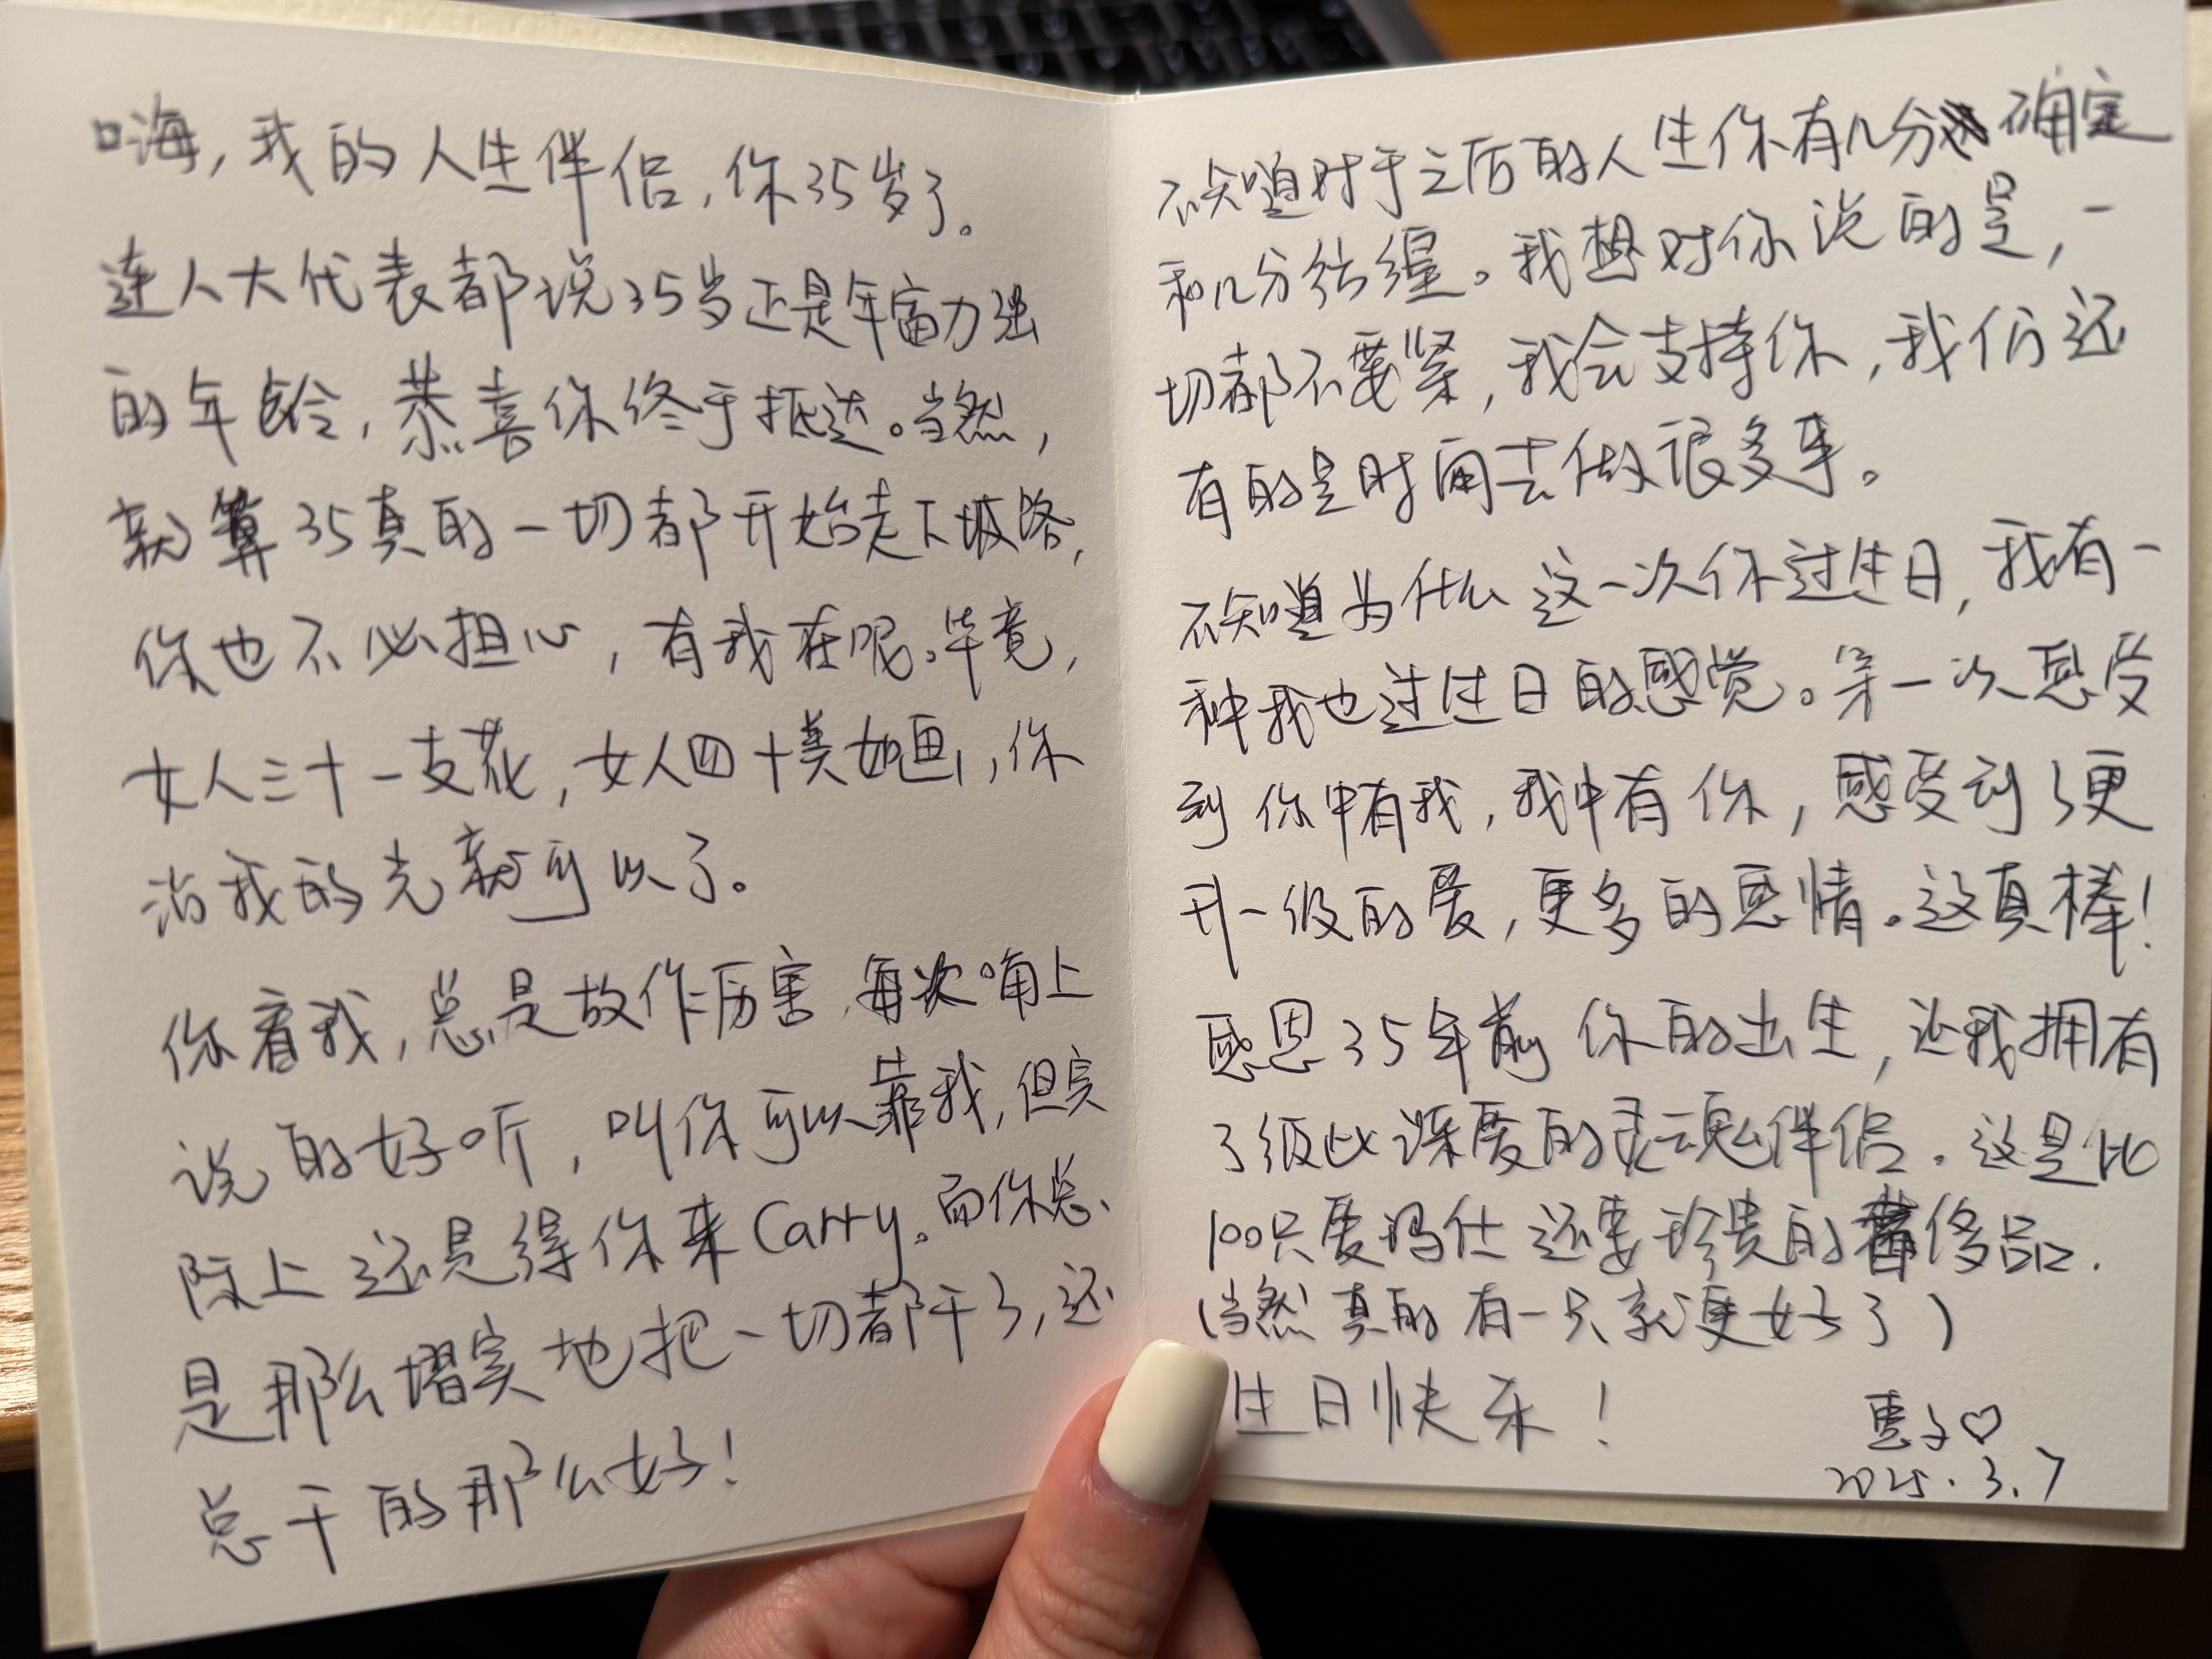 嗨，我的人生伴侣，你35岁了。
连人大代表都说35岁正是年富力强
的年龄，恭喜你终于抵达。当然，
就算35真的一切都开始走下坡路，
你也不必担心，有我在呢。毕竟，
女人三十一支花，女人四十美如画，你
沾我的光就可以了。
你看我，总是故作厉害，每次嘴上
说的好听，叫你可以靠我，但实
际上还是得你来Carry。而你总
是那么熠实地把一切都干了，还
总干的那么好！
不知道对于之后的人生你有几分确定
和几分彷徨。我想对你说的是，一
切都不要紧，我会支持你，我们还
有的是时间去做很多事。
不知道为什么这一次你过生日，我有一
种我也过生日的感觉。第一次感受
到你中有我，我中有你，感受到了更
升一级的爱，更多的恩情。这真棒！
感恩35年前你的出生，让我拥有
了彼此深爱的灵魂伴侣。这是比
100只爱马仕还要珍贵的奢侈品.
（当然真的有一只就更好了）
生日快乐！
惠子♡
2025.3.7